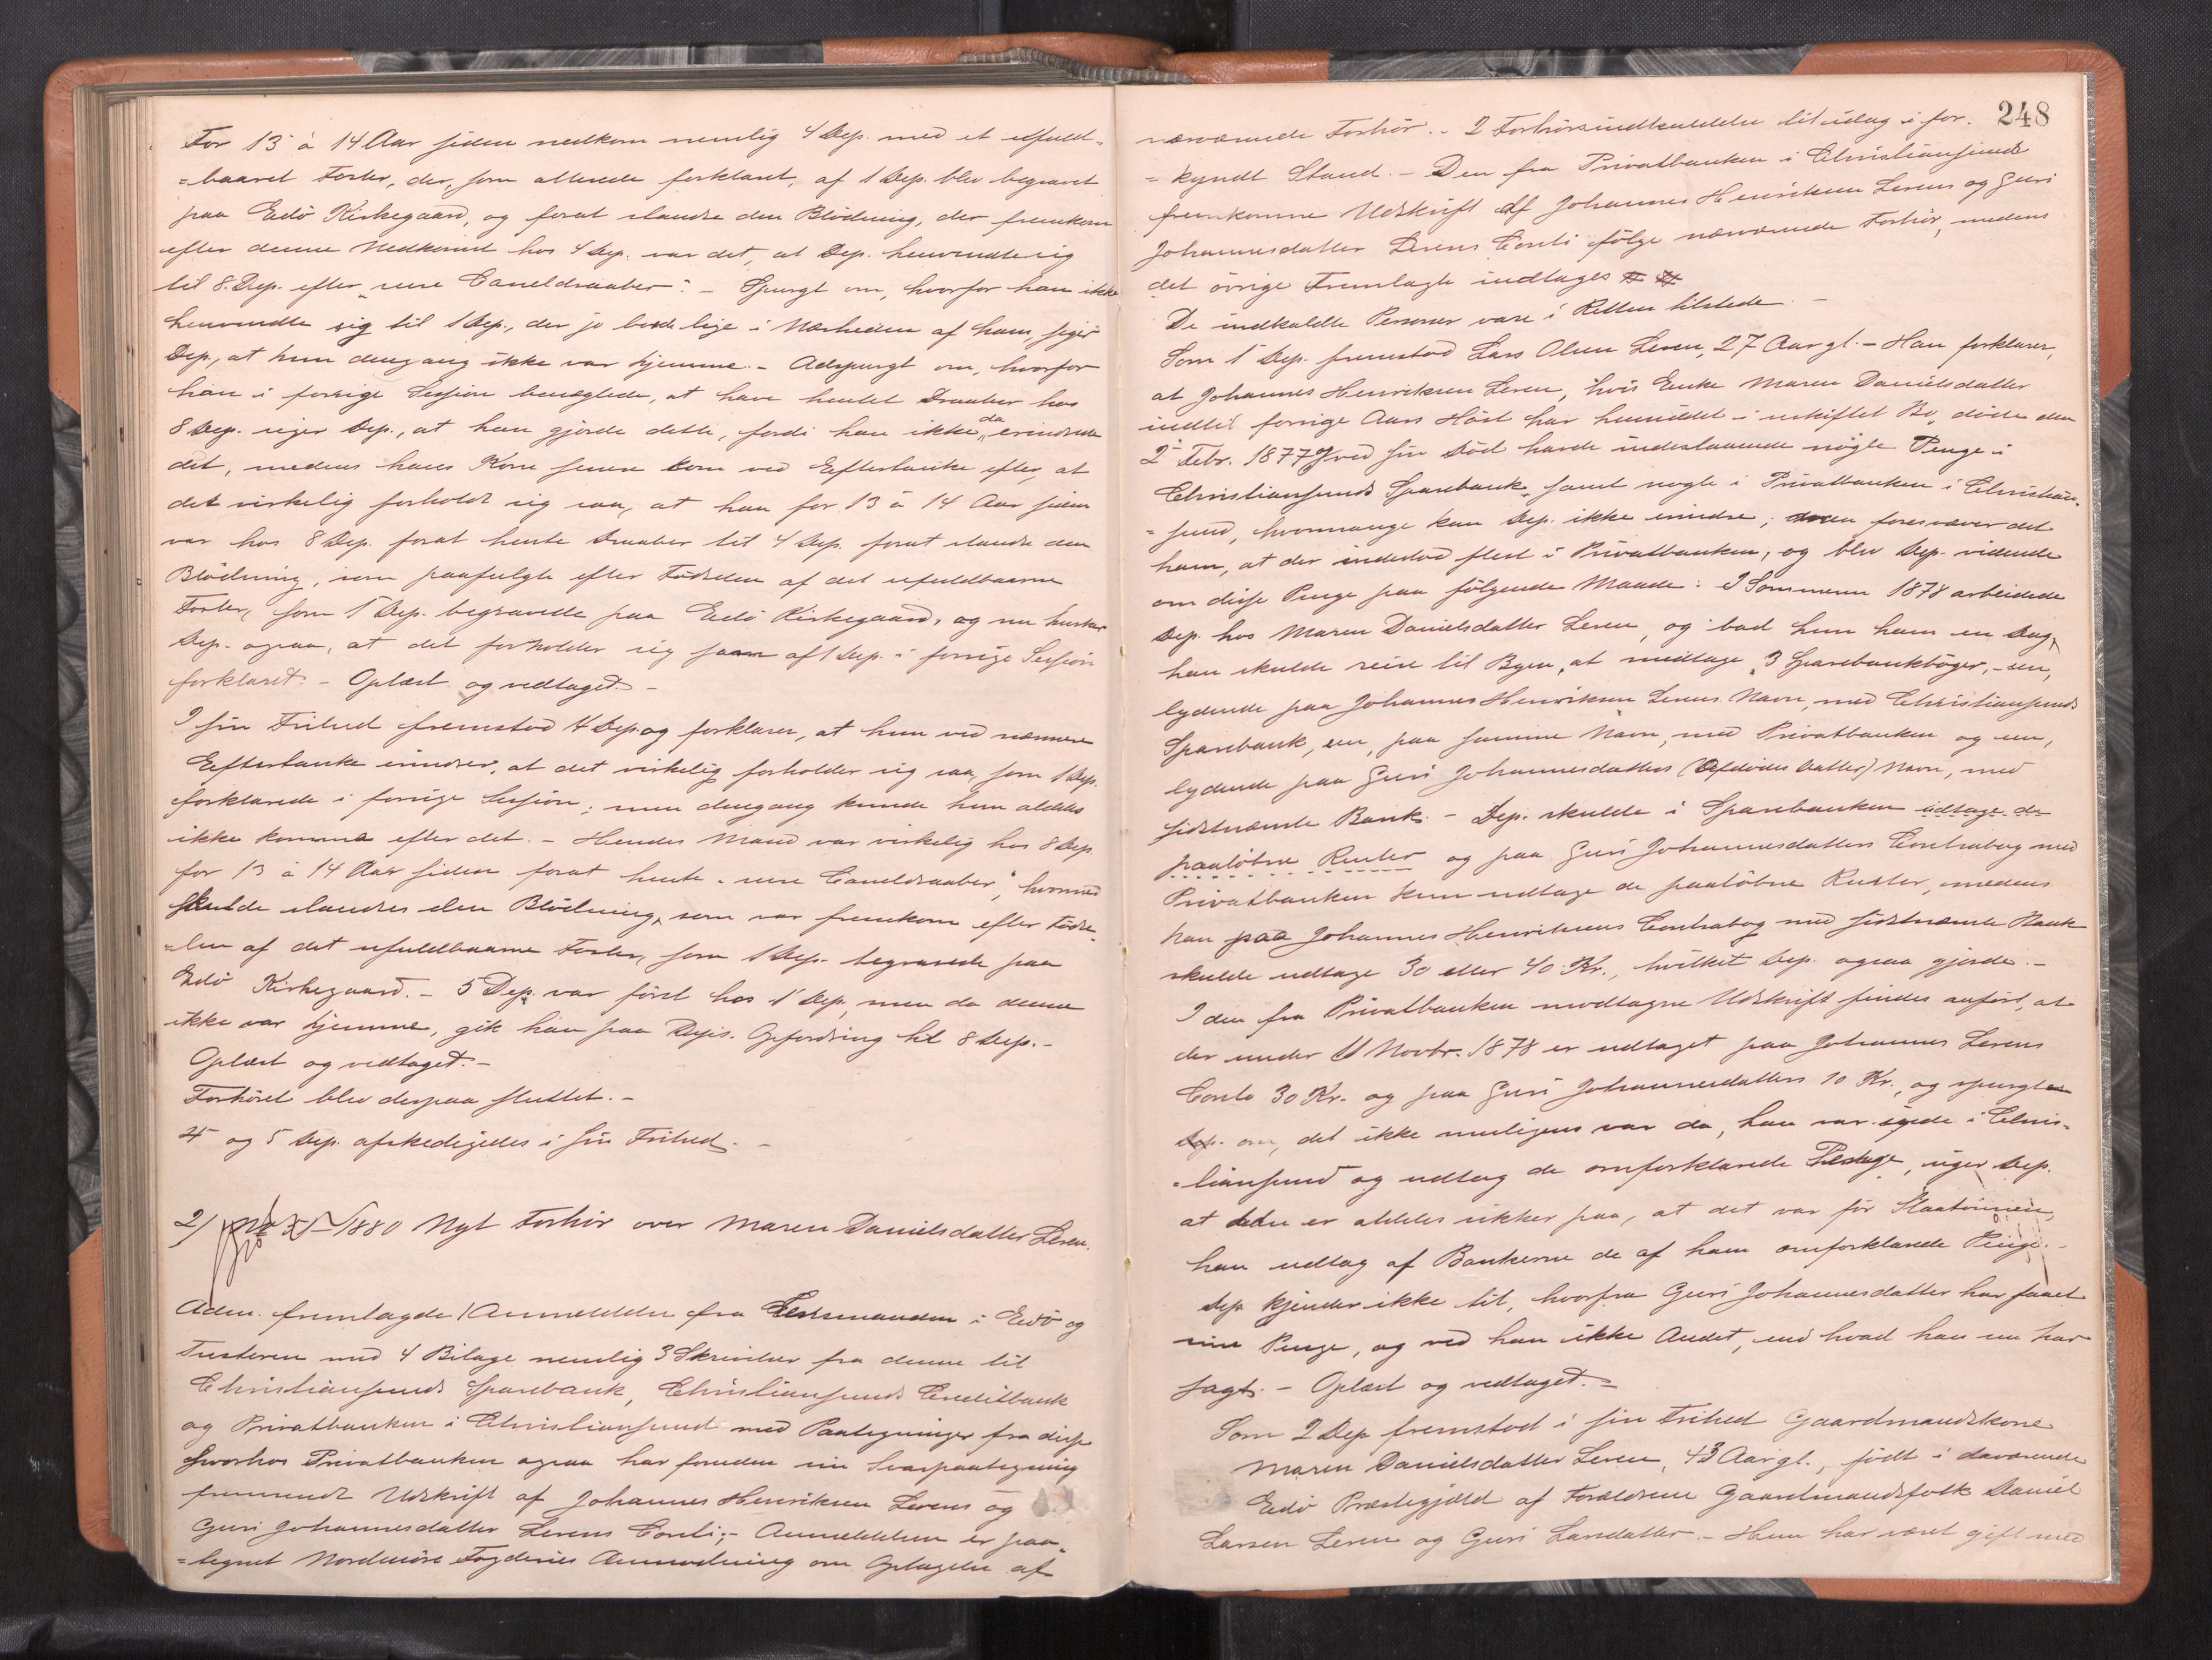 For 13 à 14 Aar siden nedkom nemlig 4 Dep. med et ufuld-
=baaret Foster, der, som allerede forklaret, af 1 Dep. blev begravet
paa Edö Kirkegaard, og forat standse den Blödning, der fremkom
efter denne Nedkomst hos 4 Dep. var det, at Dep. henvendte sig
til 8. Dep. efter "rene Caneldraaber". – Spurgt om, hvorfor han ikke
henvendte sig til 1 Dep., der jo bode lige i Nærheden af ham, siger
Dep., at hun dengang ikke var hjemme. – Adspurgt om, hvorfor
han i forrige Session benægtede, at have hentet Draaber hos
8 Dep. siger Dep., at han gjorde dette, fordi han ikke da erindrede
det, medens hans Kone senere kom ved Eftertanke efter, at
det virkelig forholdt sig saa, at han for 13 à 14 Aar siden
var hos 8 Dep. forat hente Draaber til 4 Dep. forat standse den
Blödning, som paafulgte efter Födselen af det ufuldbaarne
Foster, som 1 Dep. begravede paa Edö Kirkegaard, og nu husker
Dep. ogsaa, at det forholder sig som af 1 Dep. i forrige Session
forklaret. – Oplæst og vedtaget. –
I sin Frihed fremstod 4 Dep og forklarer, at hun ved nærmere
Eftertanke erindrer, at det virkelig forholder sig saa, som 1 Dep.
forklarede i forrige Session; men dengang kunde hun aldeles
ikke komme efter det. – Hendes Mand var virkelig hos 8 Dep.
for 13 à 14 Aar siden forat hente "rene Caneldraaber", hvormed
skulde standses den Blödning, som var fremkom efter Födse-
=len af det ufuldbaarne Foster, som 1 Dep. begravede paa
Edö Kirkegaard. – 5 Dep. var först hos 1 Dep, men da denne
ikke var hjemme, gik han paa Deps. Opfordring til 8 Dep. –
Oplæst og vedtaget. –
Forhöret blev derpaa sluttet. –
4 og 5 Dep. afskedigedes i sin Frihed. –
2) 1880 Nyt Forhör over Maren Danielsdatter Leren.
Adm. fremlagde 1 Anmeldelse fra Lensmanden i Edö og
Tusteren med 4 Bilage nemlig 3 Skrivelser fra denne til
Christiansunds Sparebank, Christiansunds Creditbank
og Privatbanken i Christiansund med Paategninger fra disse
hvorhos Privatbanken ogsaa har foruden sin Svarpaategning
fremsendt Udskrift af Johannes Henriksen Lerens og
Guri Johannesdatter Lerens Conti; – Anmeldelsen er paa-
=tegnet Nordmöre Fogderies Anmodning om Optagelse af
248
nærværende Forhör. – 2 Forhörsindkaldelser til idag i for-
=kyndt Stand. – Den fra Privatbanken i Christiansund
fremkomne Udskrift af Johannes Henriksen Lerens og Guri
Johannesdatter Lerens Conti fölge nærværende Forhör, medens
det övrige Fremlagte indtages
De indkaldte Personer vare i Retten tilstede. –
Som 1 Dep. fremstod Lars Olsen Leren, 27 Aar gl. – Han forklarer,
at Johannes Henriksen Leren, hvis Enke Maren Danielsdatter
indtil forrige Aars Höst har hensiddet i uskiftet Bo, döde den
2 Febr. 1877 & ved sin Död havde indestaaende nogle Penge i
Christiansunds Sparebank, samt nogle i Privatbanken i Christian-
=sund, hvormange kan Dep. ikke erindre; men foresvæver det
ham, at der indestod flest i Privatbanken, og blev Dep. vidende
om disse Penge paa fölgende Maade: I Sommeren 1878 arbeidede
Dep. hos Maren Danielsdatter Leren, og bad hun ham en Dag,
han skulde reise til Byen, at medtage 3 Sparebankböger, – en,
lydende paa Johannes Henriksen Lerens Navn, med Christiansunds
Sparebank, en, paa samme Navn, med Privatbanken og en,
lydende paa Guri Johannesdatters (Afdödes Datter) Navn, med
sidstnævnte Bank. – Dep. skulde i Sparebanken udtage de
paalöbne Renter og paa Guri Johannesdatters Contrabog med
Privatbanken kun udtage de paalöbne Renter, medens
han paa Johannes Henriksens Contrabog med sidstnævnte Bank
skulde udtage 30 eller 40 Kr., hvilket Dep. ogsaa gjorde. –
I den fra Privatbanken modtagne Udskrift findes anfört, at
der under 11 Novbr. 1878 er udtaget paa Johannes Lerens
Conto 30 Kr. og paa Guri Johannesdatters 10 Kr., og spurgt
Dep. om, det ikke muligens var da, han var inde i Chris-
=tiansund og udtog de omforklarede Penge, siger Dep.
at han er aldeles sikker paa, at det var för Slaatönnen,
han udtog af Bankerne de af ham omforklarede Penge. –
Dep kjender ikke til, hvorfra Guri Johannesdatter har faaet
sine Penge, og ved han ikke Andet, end hvad han nu har
sagt. – Oplæst og vedtaget. –
Som 2 Dep fremstod i sin Frihed Gaardmandskone
Maren Danielsdatter Leren, 43 Aar gl., födt i daværende
Edö Præstegjæld af Forældrene Gaardmandsfolk Daniel
Larsen Leren og Guri Larsdatter. – Hun har været gift med